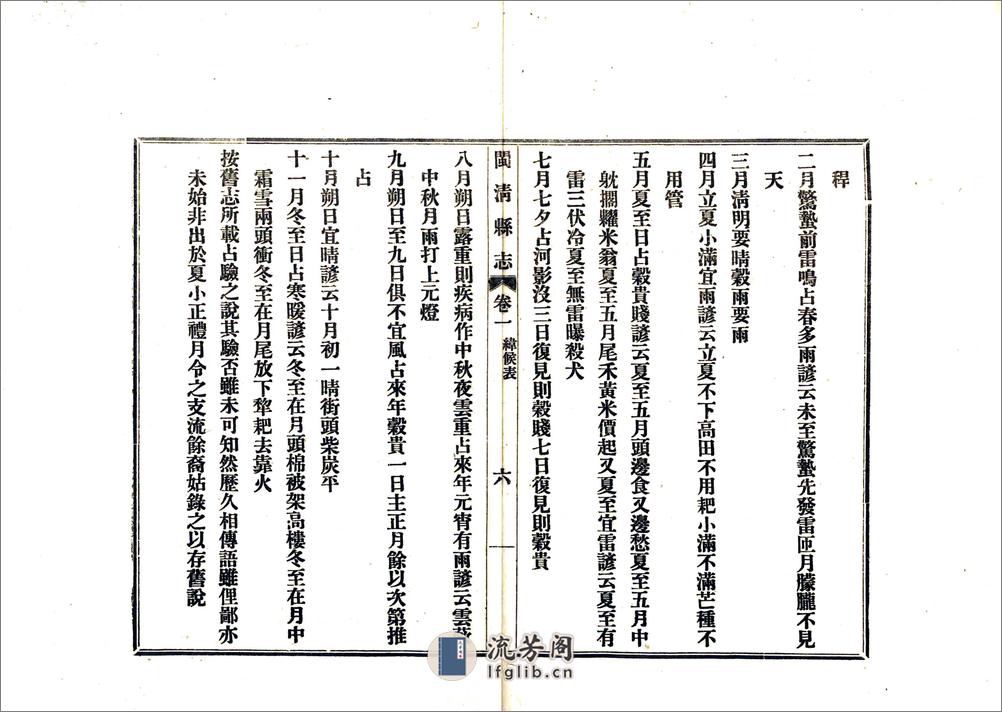 稈
二月驚蟄前雷鳴占春多雨諺云未至驚蟄先發雷匝月朦朧不見
天
三月淸明要晴穀雨要雨
四月立夏小滿宜雨諺云立夏不下高田不用耙小滿不滿芒種不
用管
五月夏至日占穀貴賤諺云夏至五月頭邊食又邊愁夏至五月中
躭擱糶米翁夏至五月尾禾黃米價起又夏至宜雷諺云夏至有
雷三伏冷夏至無雷曝殺犬
七月七夕占河影沒三日復見則穀賤七日復見則穀貴
閩淸縣志
卷一 緯候表
六
八月朔日露重則疾病作中秋夜雲重占來年元宵有雨諺云雲
中秋月雨打上元燈
九月朔日至九日俱不宜風占來年穀貴一日主正月餘以次第推
占
十月朔日宜晴諺云十月初一晴街頭柴炭平
十一月冬至日占寒暖諺云冬至在月頭棉被架高樓冬至在月中
霜雪兩頭衝冬至在月尾放下犂耙去靠火
按舊志所載占驗之說其驗否雖未可知然歷久相傳語雖俚鄙亦
未始非出於夏小正禮月令之支流餘裔姑錄之以存舊說
流芳阁
lfglib.cn